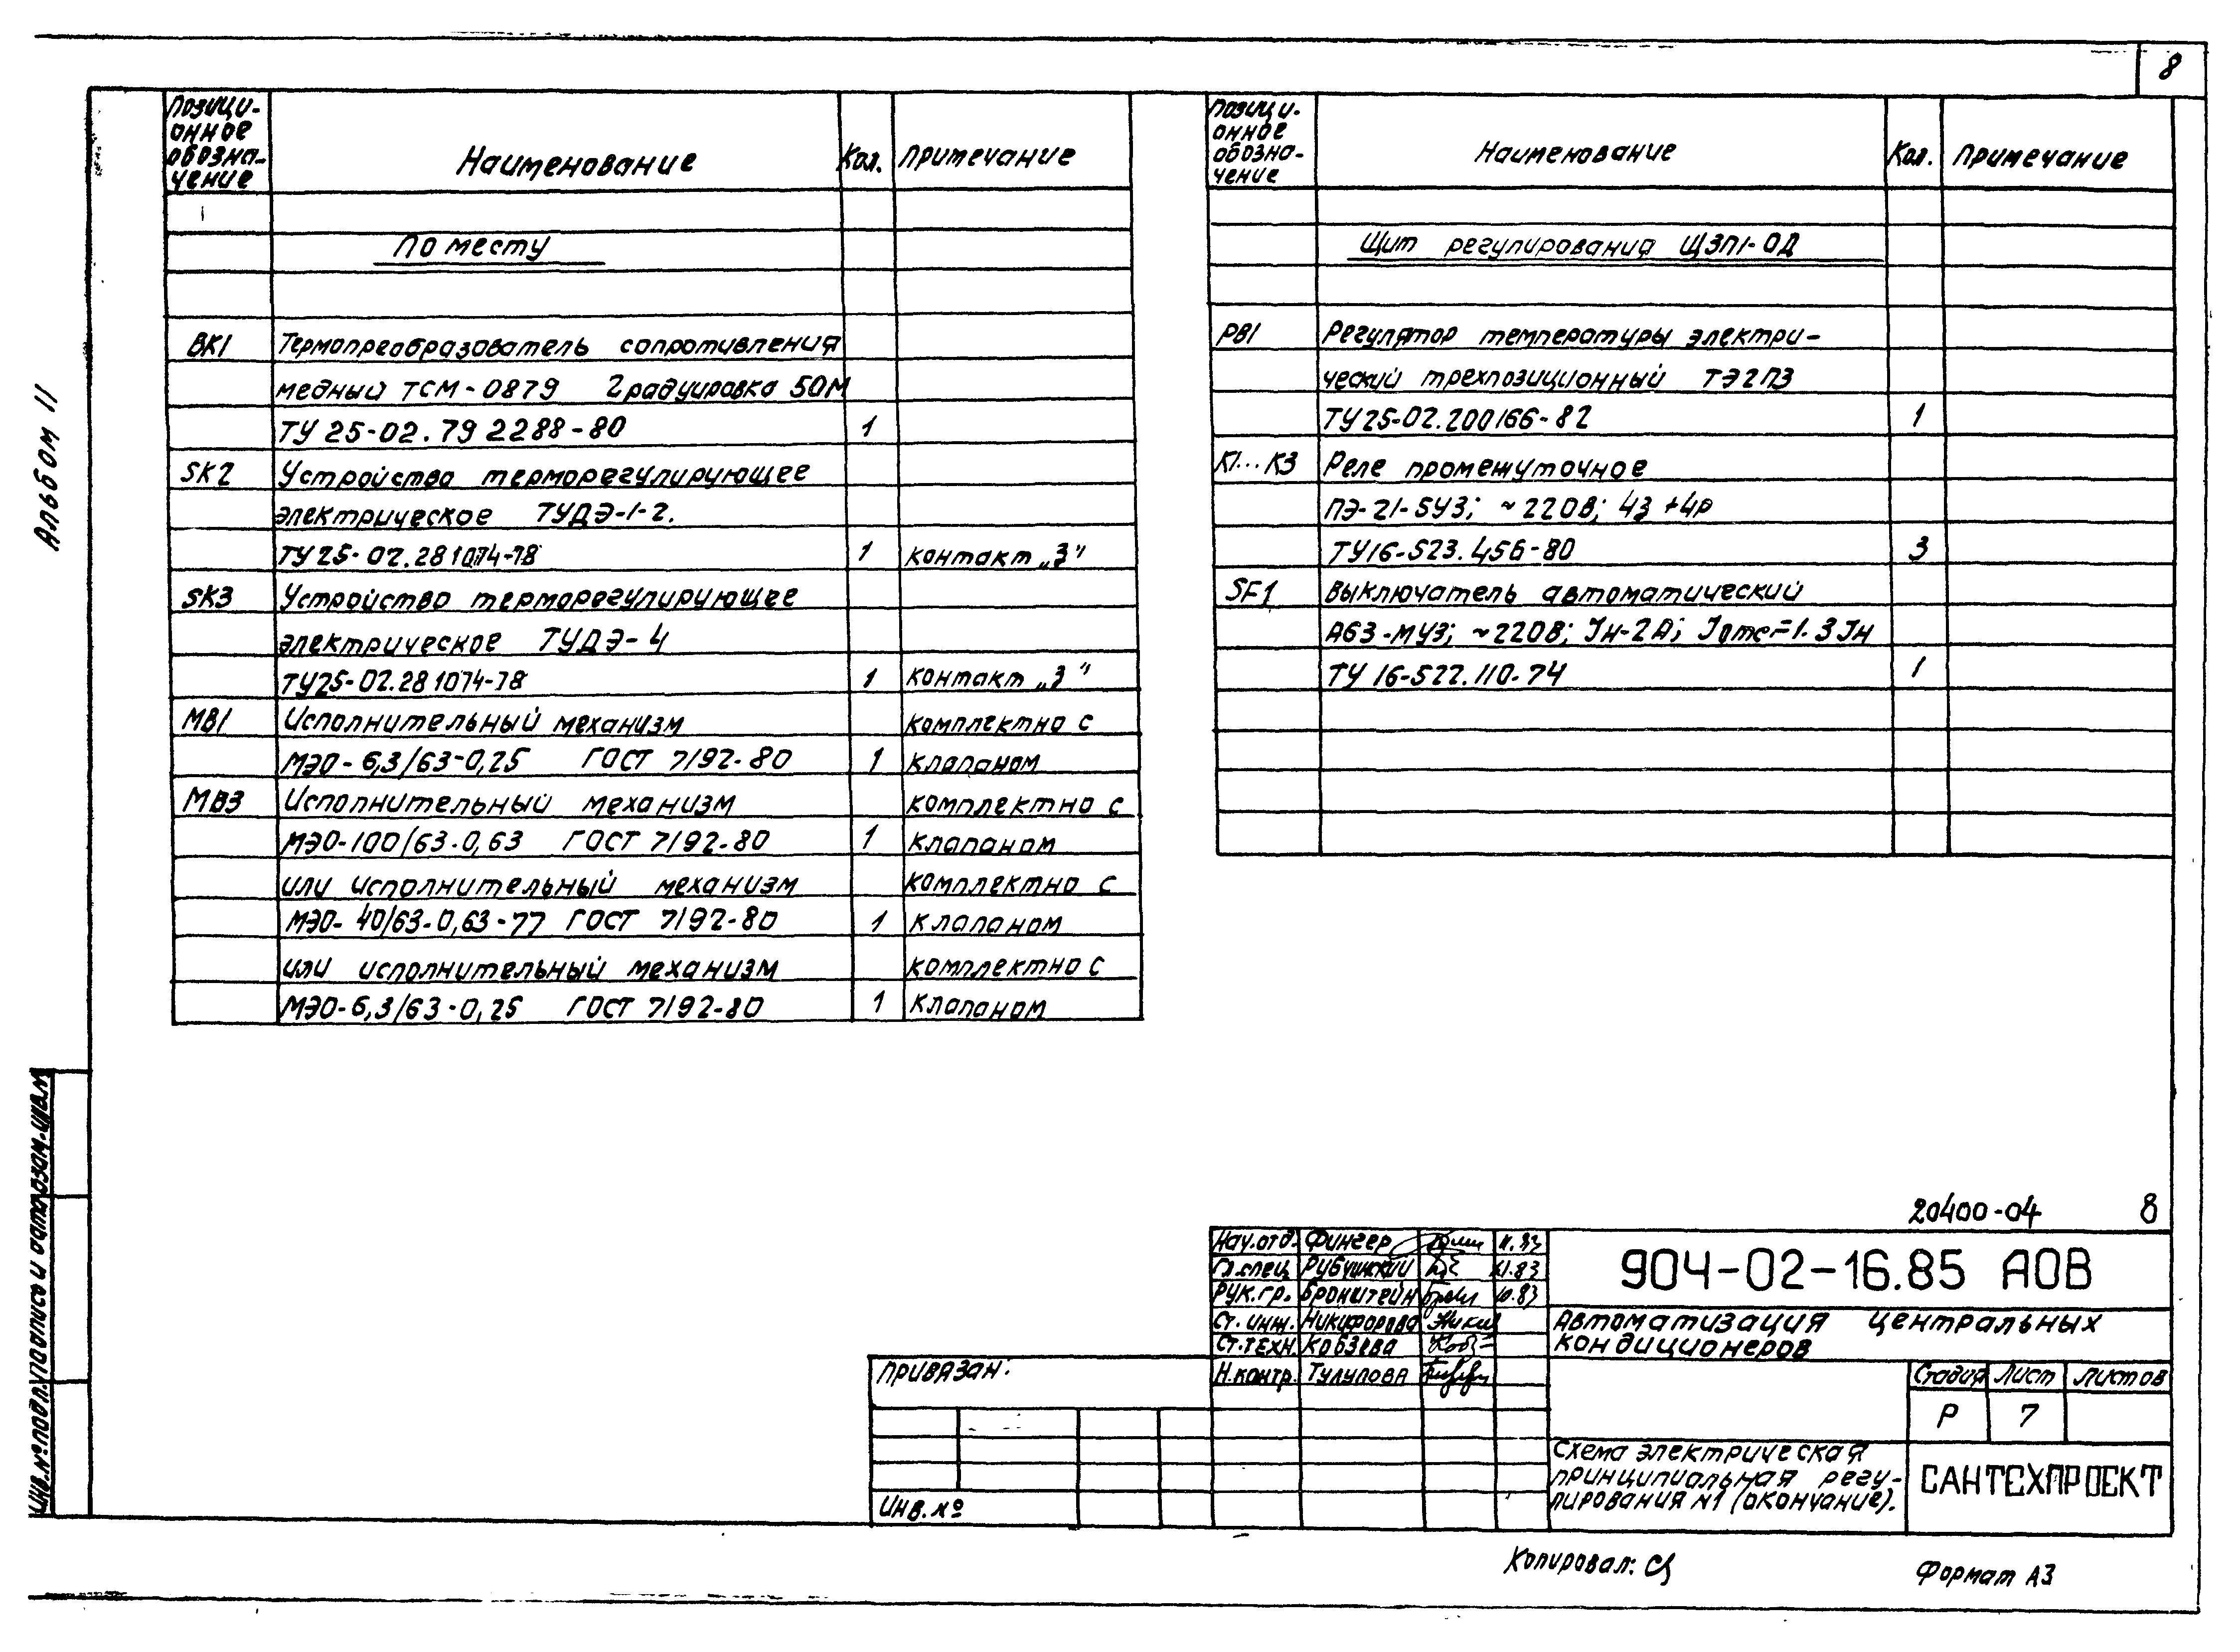 8
Альбом II
Позици-
онное
обозна-
чение
Наименование
Кол.
Примечание
По месту
ВК1 Термопреобразователь сопротивления
медный ТСМ-0879 Градуировка 50М
ТУ 25-02.79 2288-80 1
SK2 Устройство терморегулирующее
электрическое ТУДЭ-1-2.
ТУ25-02.281074-78 1 контакт „З"
SK3 Устройство терморегулирующее
электрическое ТУДЭ-4
ТУ25-02.281074-78 1 контакт „З"
МВ1 Исполнительный механизм комплектно с
МЭО-6,3/63-0,25 ГОСТ 7192-80 1 клапаном
МВ3 Исполнительный механизм комплектно с
МЭО-100/63-0,63 ГОСТ 7192-80 1 клапаном
или исполнительный механизм комплектно с
МЭО-40/63-0,63-77 ГОСТ 7192-80 1 клапаном
или исполнительный механизм комплектно с
МЭО-6,3/63-0,25 ГОСТ 7192-80 1 клапаном
Позици-
онное
обозна-
чение
Наименование
Кол.
Примечание
Щит регулирования ЩЗП1-ОД
РВ1 Регулятор температуры электри-
ческий трехпозиционный ТЭ2П3
ТУ25-02.200166-82 1
К1...К3 Реле промежуточное
ПЭ-21-5У3; ~220В; 4з+4р
ТУ16-523.456-80 3
SF1 Выключатель автоматический
А63-МУ3; ~220В; Iн-2А; Iотс=1.3Iн
ТУ 16-522.110-74 1
20400-04 8
Нач.отд. Фингер 11.83
Гл.спец. Рубчинский XI.83
Рук.гр. Бронштейн
Ст.инж. Никифорова
Ст.техн. Кобзева
Н.контр. Тулупова
904-02-16.85 АОВ
Автоматизация центральных
кондиционеров
Стадия Лист Листов
Р 7
Схема электрическая
принципиальная регу-
лирования №1 (окончание).
САНТЕХПРОЕКТ
Привязан:
Инв.№
Инв.№ подл. Подпись и дата Взам.инв.№
Копировал:
Формат А3